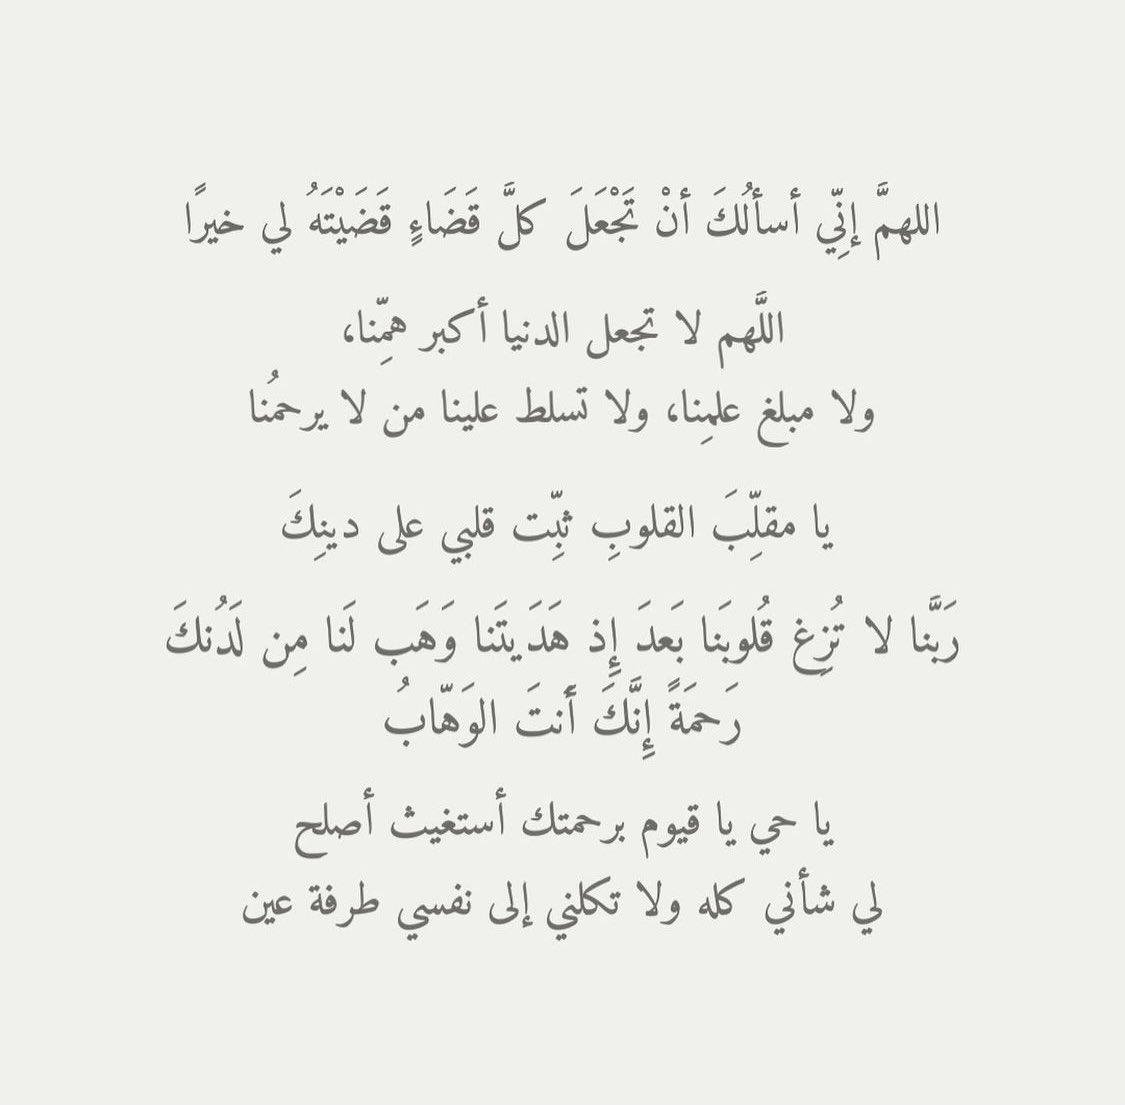 اللهمَّ إنِّي أسألُكَ أنْ تَجْعَلَ كلَّ قَضَاءٍ قَضَيْتَهُ لي خيرًا
اللَّهم لا تجعل الدنيا أكبر همِّنا،
ولا مبلغ علمِنا، ولا تسلط علينا من لا يرحمُنا
يا مقلِّبَ القلوبِ ثبِّت قلبي على دينِكَ
رَبَّنا لا تُزِغ قُلوبَنا بَعدَ إِذ هَدَيتَنا وَهَب لَنا مِن لَدُنكَ
رَحمَةً إِنَّكَ أَنتَ الوَهّابُ
يا حي يا قيوم برحمتك أستغيث أصلح
لي شأني كله ولا تكلني إلى نفسي طرفة عين